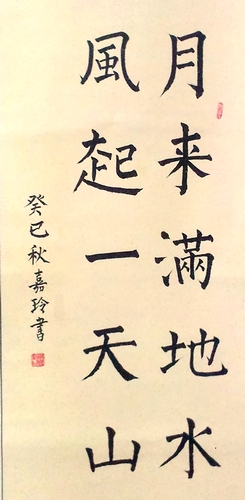 月来滿地水
風起一天山
癸巳秋嘉玲書